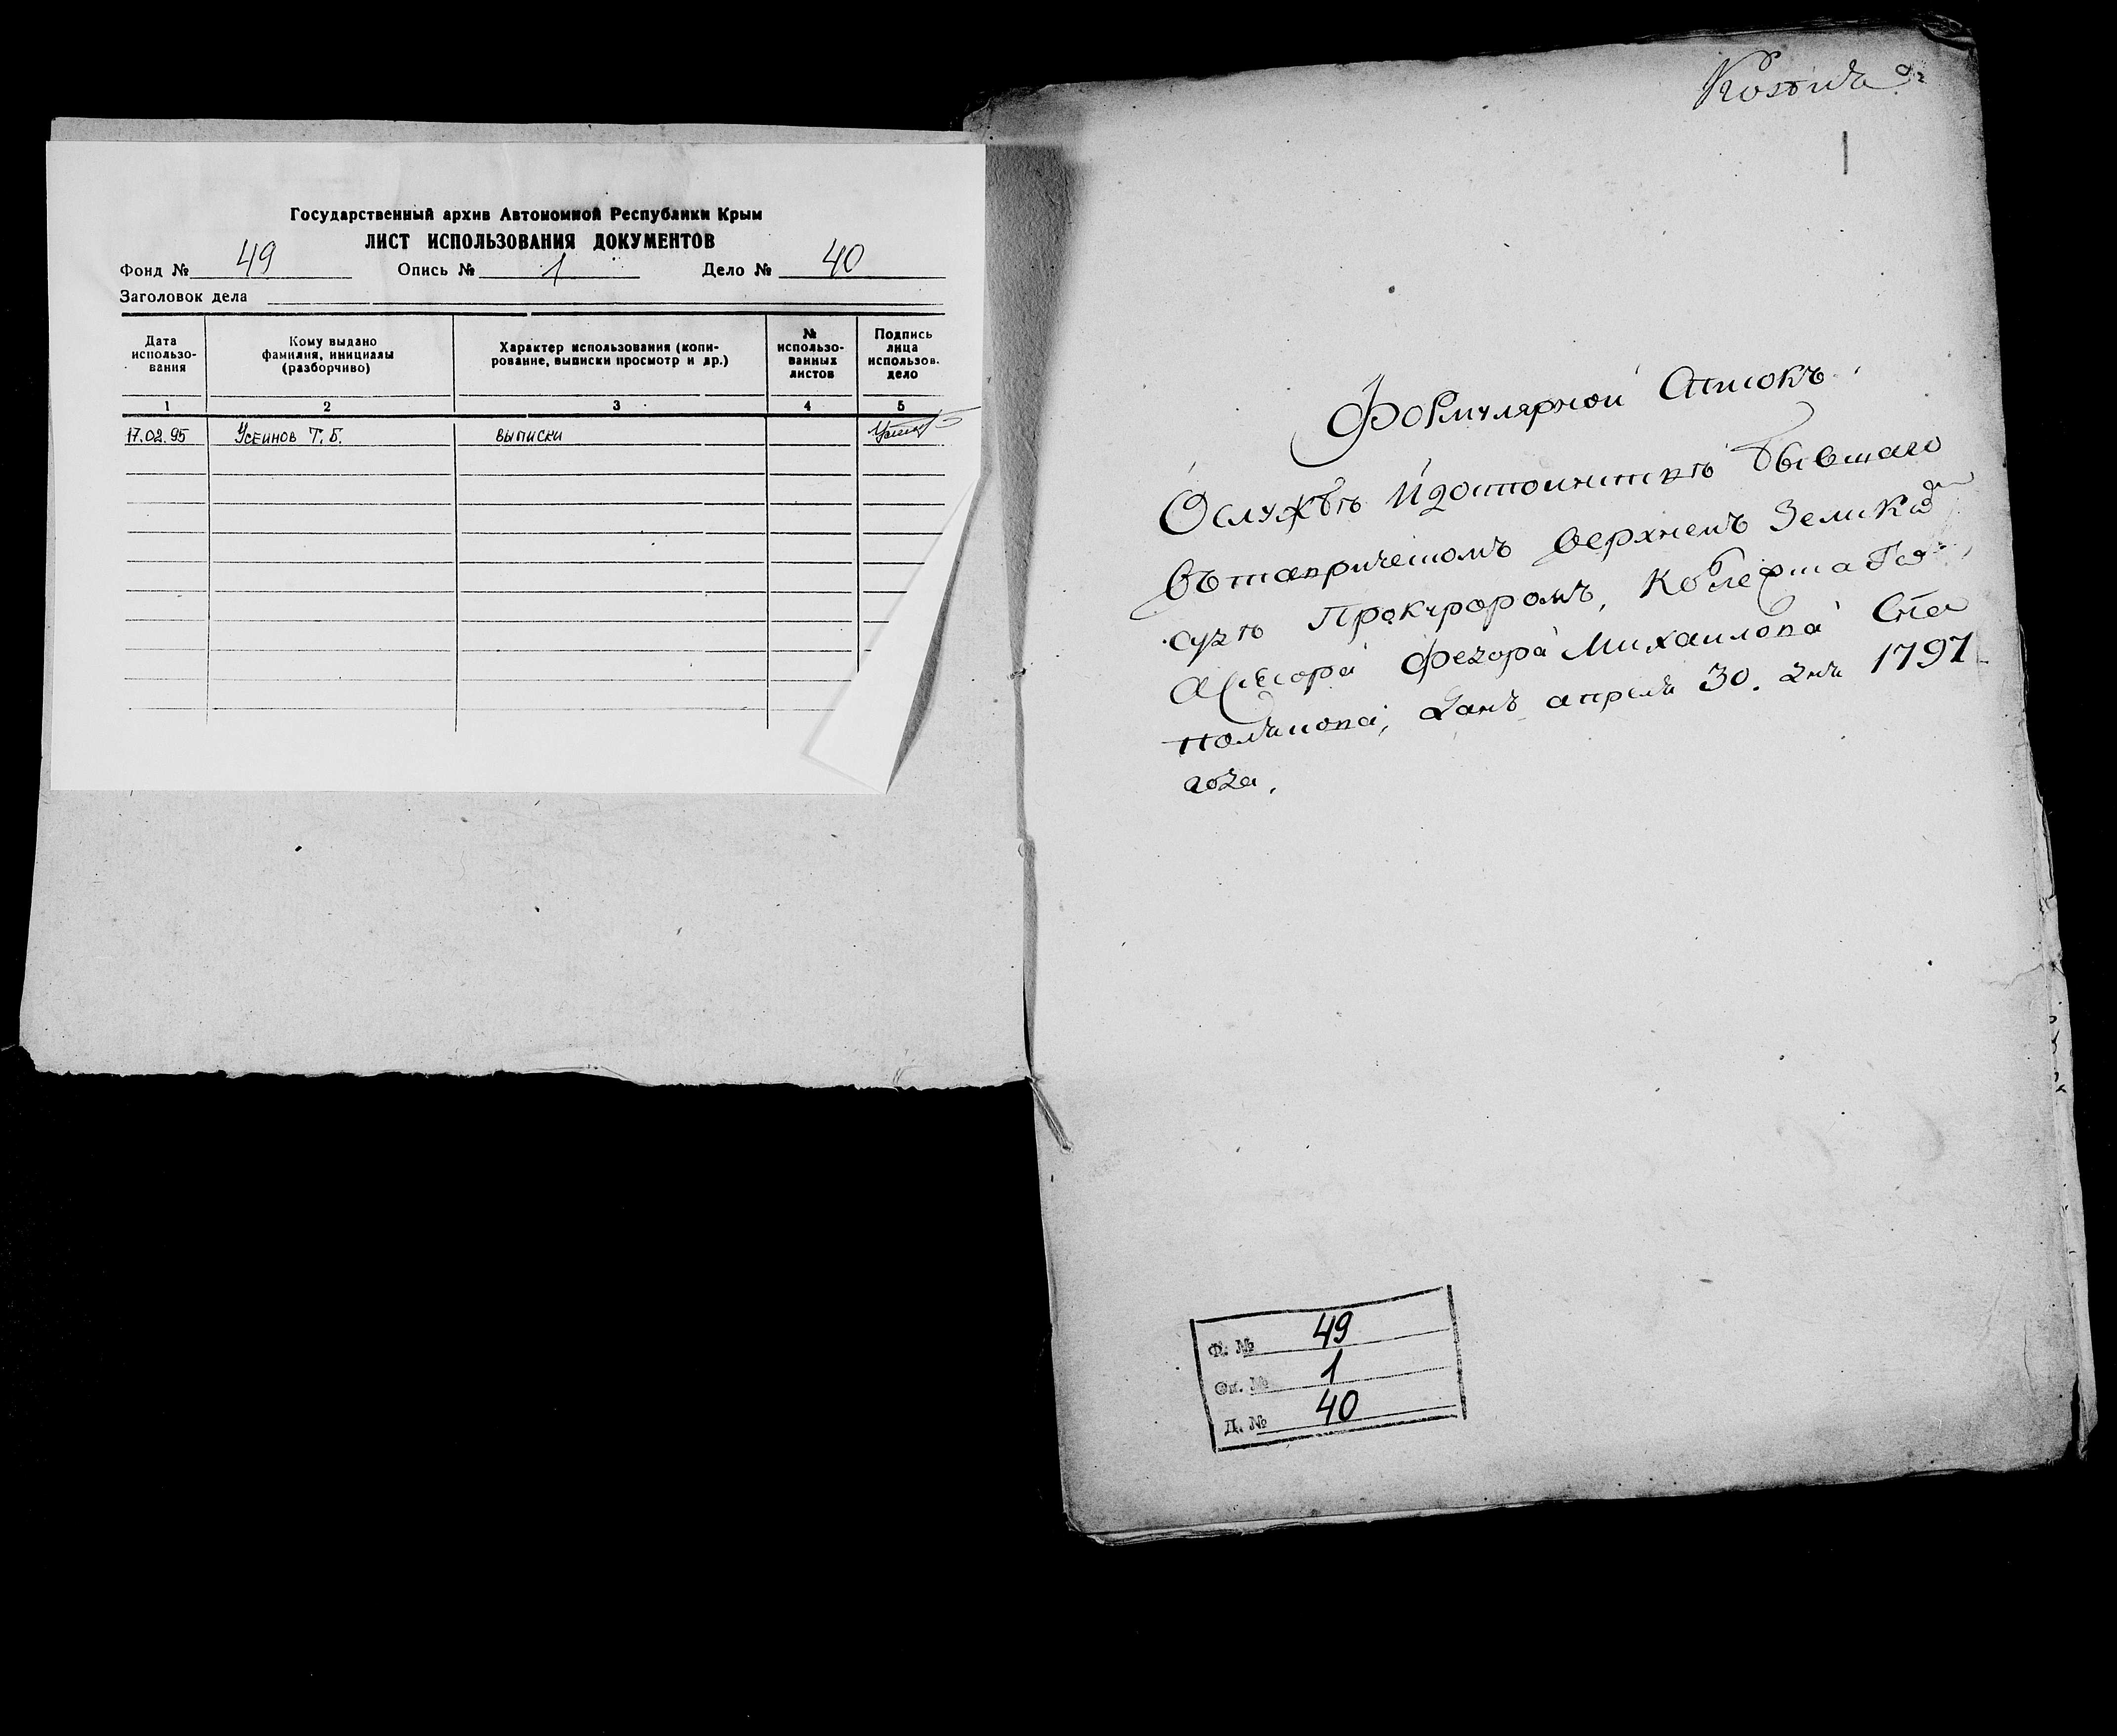 Государственный архив Автономной Республики Крым
ЛИСТ ИСПОЛЬЗОВАНИЯ ДОКУМЕНТОВ
Фонд № 49 Опись № 1 Дело № 40
Заголовок дела
Дата использо-вания
Кому выдано фамилия, инициалы (разборчиво)
Характер использования (копи-рование, выписки просмотр и др.)
№ использо-ванных листов
Подпись лица использов. дело
1 2 3 4 5
17.02.95 Усеинов Т. Б. выписки
Копия
Формулярной Списокъ
О службѣ И достоинствѣ бывшаго
въ таврическомъ верхнемъ Земскомъ
судѣ Прокуроромъ, Коллежскаго
Ассесора Федора Михаилова Ста
польского, Данъ апреля 30. дня 1797
года,
Ф. № 49
Оп. № 1
Д. № 40